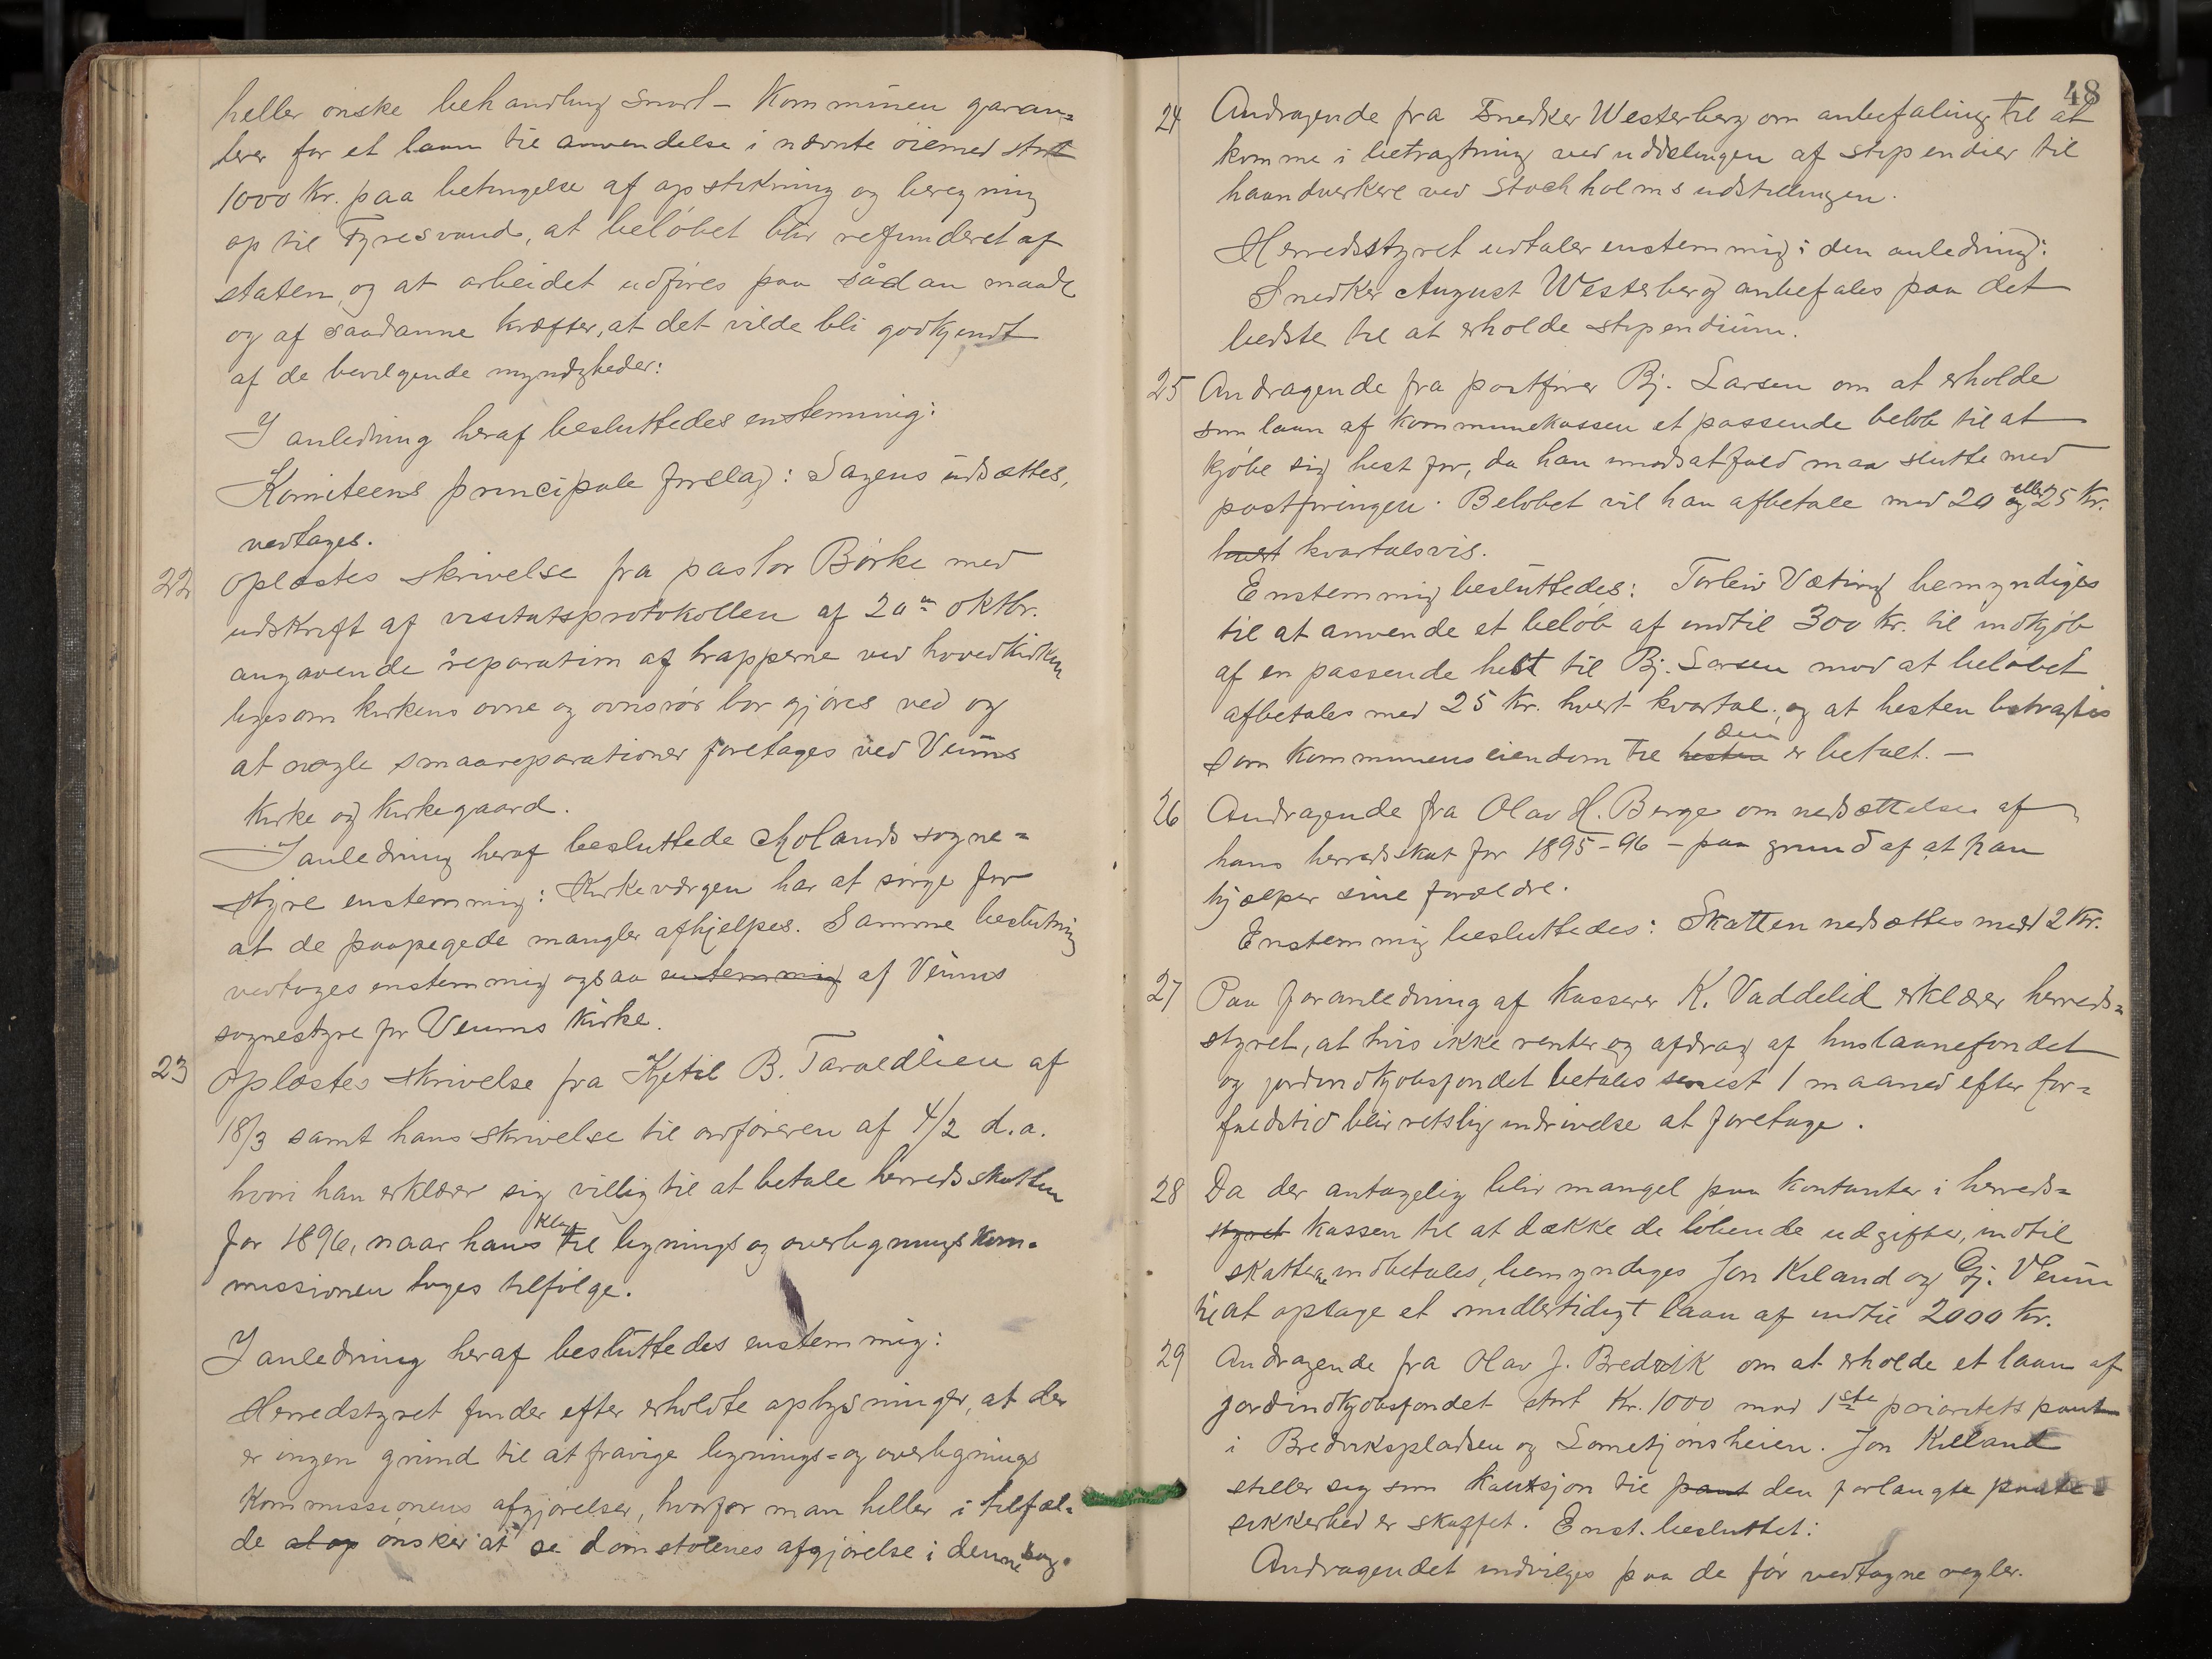 heller ønske behandling snarl - Kommünen garan=
terer for et laan til anvendelse i nævnte øiemed stort
1000 Kr. paa betingelse af opstikning og beregning
op til Fyresvand, at beløbet blir refunderet af
staten, og at arbeidet udføres paa sådan maade
og af saadanne kræfter, at det vilde bli godkjendt
af de bevilgende myndigheder:
I anledning heraf besluttedes enstemmig:
Komiteens principale forslag: Sagens üdsættes,
vedtages.
22 Oplæstes skrivelse fra pastor Børke med
udskrift af visitatsprotokollen af 20de oktbr.
angaaende reparation af trapperne ved hovedkirken
ligesom kirkens ovne og ovnsrør bør gjøres ved og
at nogle smaareparationer foretages ved Veüms
Kirke og Kirkegaard.
I anledning heraf besluttede Molands sogne=
styre enstemmig: Kirkeværgen har at sørge for
at de paapegede mangler afhjelpes. Samme beslutning
vedtoges enstemmig ogsaa enstemmig af Veüms
sognestyre for Veums Kirke.
23 Oplæstes skrivelse fra Kjetil B. Taraldlien af
18/3 samt hans skrivelse til ordføreren af 4/2 d.a.
hvori han erklærer sig villig til at betale herredsskatten
for 1896, naar hans klag til lignings og overlignings kom=
missionen tages tilfølge.
I anledning heraf beslüttedes enstemmig:
Herredstyret finder efter erholdte oplysninger, at der
er ingen gründ til at fravige lignings= og overlignings
Kommissionens afgjørelser, hvorfor man heller i tilfæl=
de at op ønsker at se domstolenes afgjørelse i denne sag.
48
24 Andragende fra Snedker Westerberg om anbefaling til at
komme i betragtning ved uddelingen af stipendier til
haandverkere ved Stockholmsudstillingen.
Herredsstyret udtaler enstemmig i den anledning:
Snedker August Westerberg anbefales paa det
bedste til at erholde stipendiüm.
25 Andragende fra postfører Bj. Larsen om at erholde
som laan af Kommunekassen et passende beløb til at
kjøbe sig hest for, da han imodsatfald maa slutte med
postføringen. Beløbet vil han afbetale med 20 og eller 25 Kr.
hvert kvartalsvis.
Enstemmig beslüttedes: Torleiv Væting bemyndiges
til at anvende et beløb af indtil 300 Kr. til indkjøb
af en passende hest til Bj. Larsen mod at beløbet
afbetales med 25 Kr. hvert kvartal, og at hesten betragtes
som kommunens eiendom til hesten den er betalt. -
26 Andragende fra Olav H. Berge om nedsættelse af
hans herredsskat for 1895-96 - paa grund af at han
hjælper sine forældre.
Enstemmig besluttedes: Skatten nedsættes med 2 Kr.
27 Paa foranledning af kasserer K. Vaddelid erklærer herreds=
styret, at hvis ikke renter og afdrag af huslaanefondet
og jordindkjøbsfondet betales senest 1 maaned efter for=
faldstid blir retslig inddrivelse at foretage.
28 Da der antagelig blir mangel paa kontanter i herreds=
styret kassen til at dække de løbende udgifter, indtil
skatterne indbetales, bemyndiges Jon Kiland og Gj. Veüm
til at optage et midlertidigt laan af indtil 2000 Kr.
29 Andragende fra Olav J. Bredvik om at erholde et laan af
jordindkjøbsfondet stort Kr. 1000 mod 1ste prioritets pant
i Bredvikspladsen og Lometjønsheien. Jon Kiland
stiller sig som kautsjon til pant den forlangte pante=
sikkerhed er skaffet. Enst. besluttet:
Andragendet indvilges paa de før vedtagne regler.